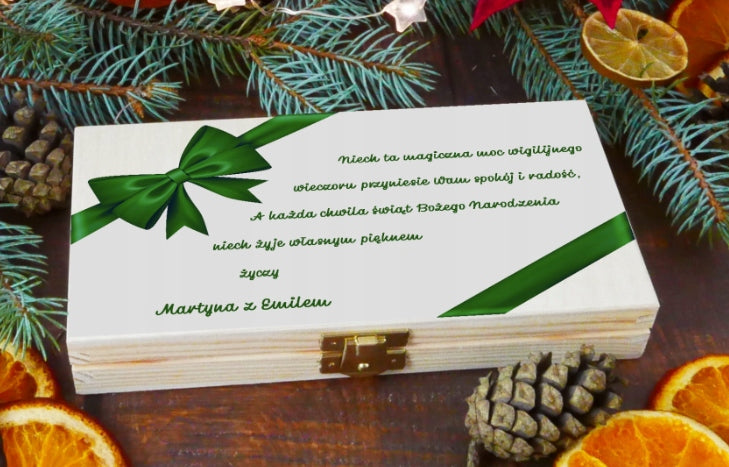 Niech ta magiczna moc wigilijnego
wieczoru przyniesie Wam spokój i radość,
A każda chwila świąt Bożego Narodzenia
niech żyje własnym pięknem
życzy
Martyna z Emilem